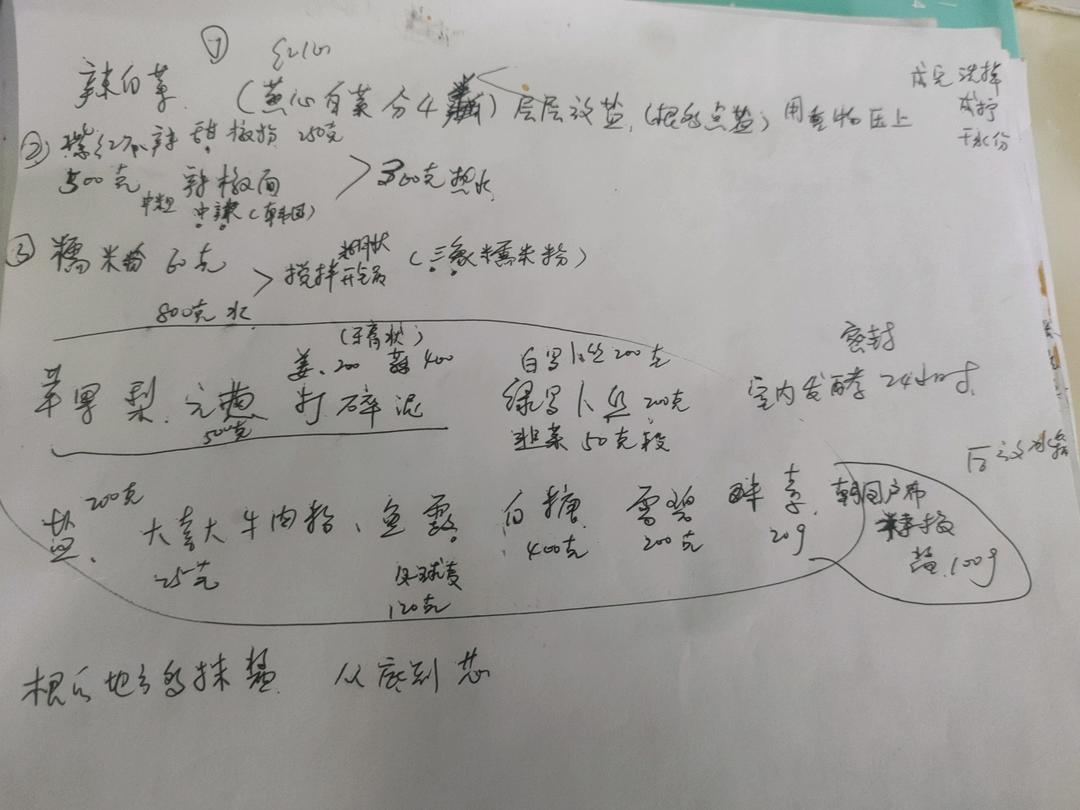 ①
辣白菜 (黄心白菜分4瓣) 层层放盐,(根多点盐) 用重物压上
腌完洗掉
干水份
② 甜椒 250克
500克 辣椒面 > 300克热水
中粗 中辣(韩国)
③ 糯米粉 60克 > 搅拌 糊状 (三象糯米粉)
800克水
(牙膏状)
姜 200 蒜 400
苹果 梨 元葱 打碎泥
500克
白罗卜丝 200克
绿罗卜丝 200克
韭菜 50克 段
密封
室内发酵 24小时
后放冰箱
盐 200克 大喜大牛肉粉、鱼露 白糖 雪碧 味素
25克 120克 400克 200克 20g
100g
根的地方多抹盐 从底到芯